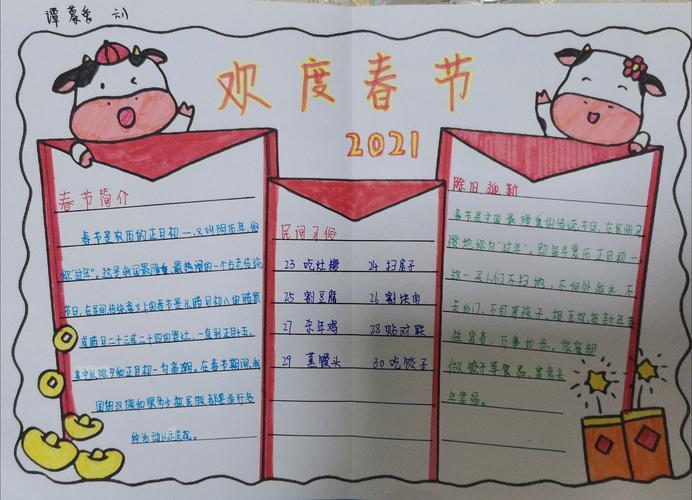 谭蒙 六1
欢度春节
2021
春节简介
春节是农历的正月初一,又叫阴历年,俗
称"过年"。这是我国最隆重、最热闹的一个古老传统
节日。在民间,传统意义上的春节是从腊月初八的腊祭
或腊月二十三或二十四的祭灶,一直到正月十五,
其中以除夕和正月初一为高潮。在春节期间,我
国的汉族和很多少数民族都要举行各
种活动以示庆祝。
民间习俗
23 吃灶糖 24 扫房子
25 割豆腐 26 割块肉
27 杀年鸡 28 贴对联
29 蒸馒头 30 吃饺子
除旧迎新
春节是中国最隆重的传统节日,在民间习
惯地称为"过年",即每年农历正月初一
这一天人们不扫地、不倒外
走后门、不打骂孩子,相互祝贺新年吉
祥富贵、万事如意,家家都
做饺子等食品,寓意
年幸福。